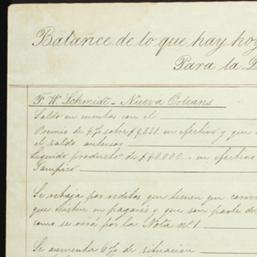 Balance de lo que hay hoy
Para la D
F. W. Schmidt - Nueva Orleans
Saldo en cuenta con el
Premio de 4% sobre en efectivo y que
el saldo anterior
Segundo producto de en efectivo
Tampico
Se rebaja por réditos que tienen que
que en pagarés y que son parte de
como se vía por la Nota no. 1
Se aumenta 6% de situación